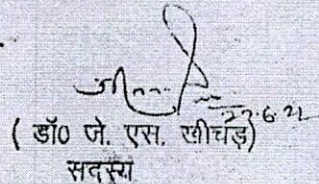 27.6.22
( डॉ0 जे. एस. खीचड़)
सदस्य